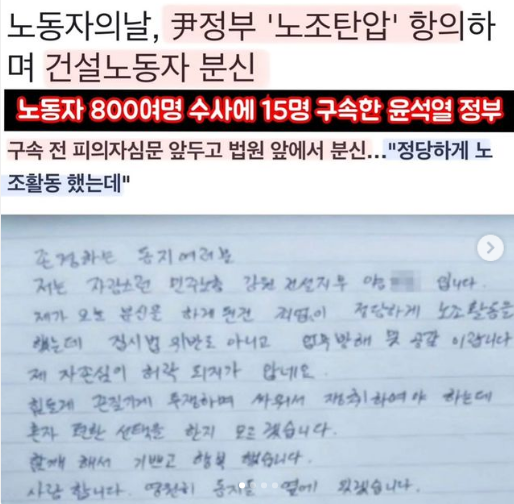 노동자의날, 尹정부 '노조탄압' 항의하
며 건설노동자 분신
노동자 800여명 수사에 15명 구속한 윤석열 정부
구속 전 피의자심문 앞두고 법원 앞에서 분신..."정당하게 노
조활동 했는데"
존경하는 동지여러분
저는 자랑스런 민주노총 강원 건설지부 양 입니다.
제가 오늘 분신을 하게된건 죄없이 정당하게 노조활동을
했는데 집시법 위반도 아니고 업무방해 및 공갈 이랍니다
제 자존심이 허락 되지가 않네요.
힘들게 끈질기게 투쟁하며 싸워서 쟁취하여야 하는데
혼자 편한 선택을 한지 모르겠습니다.
함께 해서 기쁘고 행복 했습니다.
사랑 합니다. 영원히 동지들 옆에 있겠습니다.